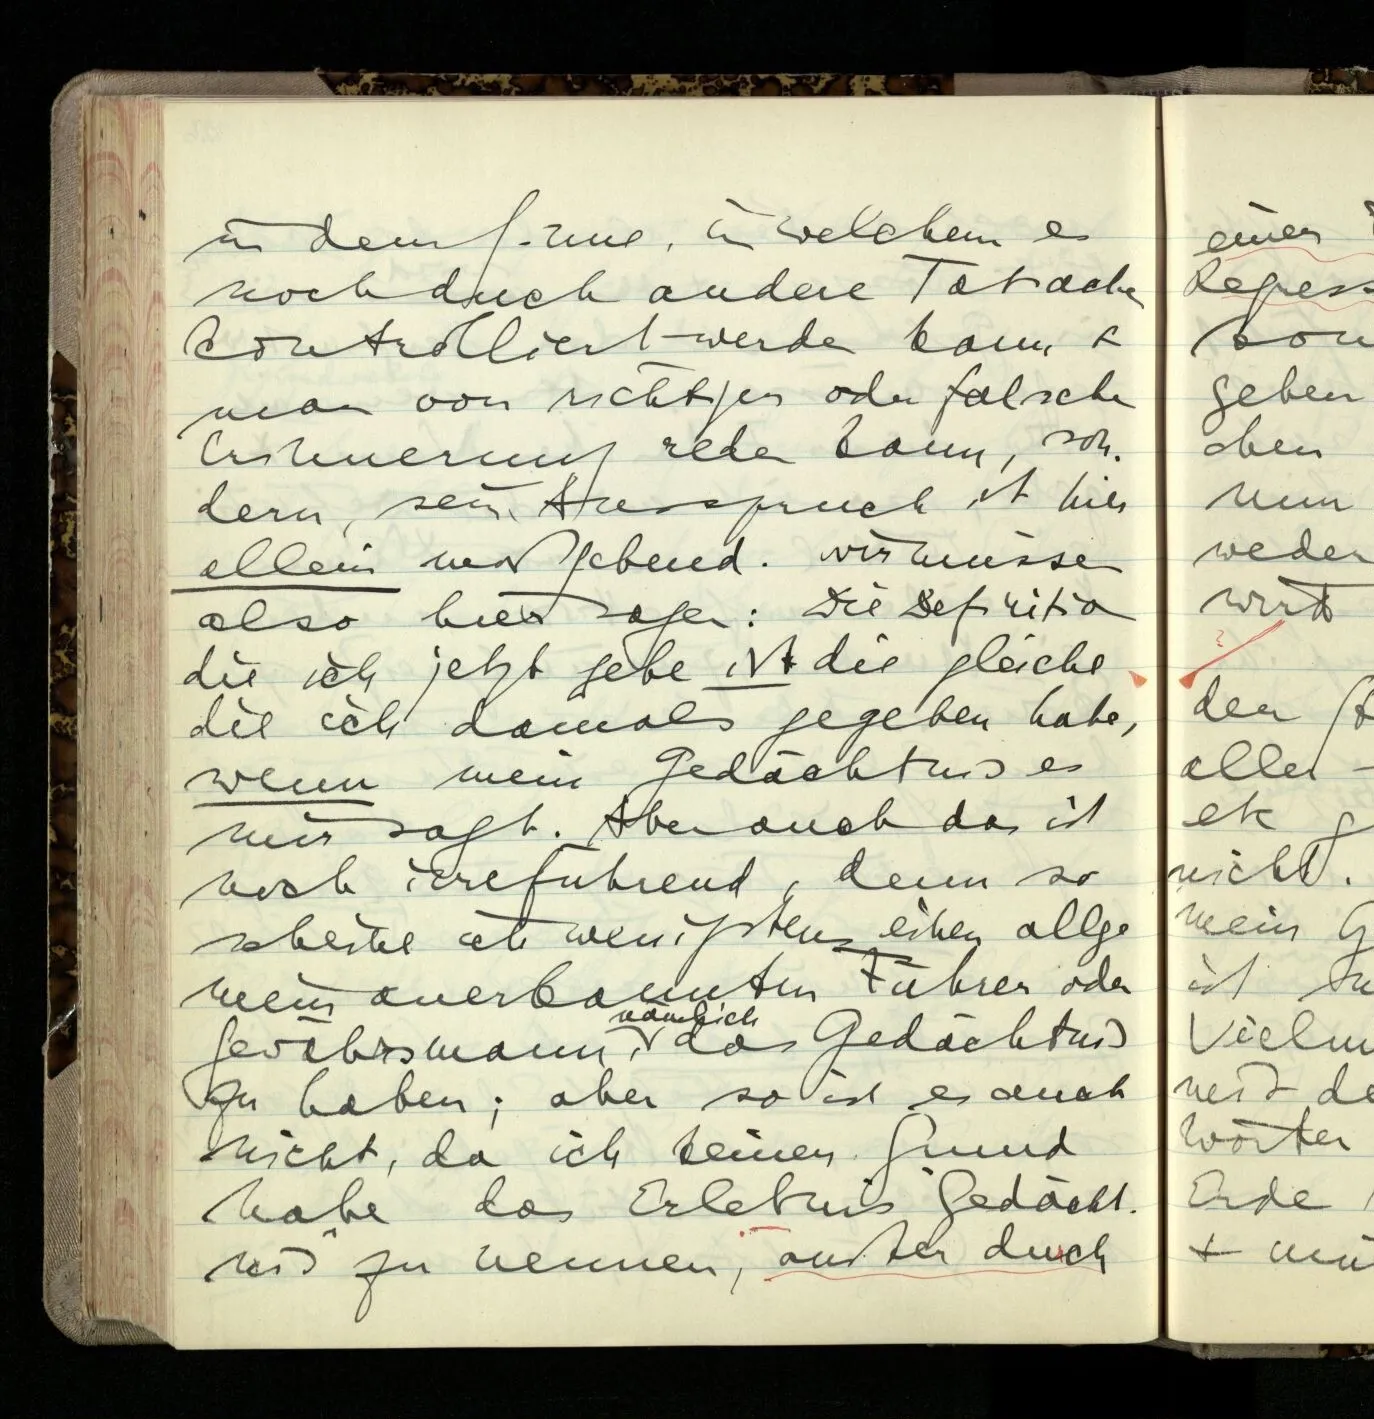 in dem Sinne, in welchem es
noch durch andere Tatsachen
kontrolliert werden kann &
man von richtiger oder falscher
Erinnerung reden kann, son-
dern, sein Ausspruch ist hier
allein maßgebend. Wir müssen
also hier sagen: Die Definition
die ich jetzt gebe ist die gleiche
die ich damals gegeben habe,
wenn mein Gedächtnis es
mir sagt. Aber auch das ist
noch irreführend, denn so
scheine ich wenigstens einen allge
mein anerkannten Führer oder
nämlich
Gewährsmann, das Gedächtnis
zu haben; aber so ist es auch
nicht, da ich keinen Grund
habe das Erlebnis "Gedächt-
nis" zu nennen, außer durch
einen
Regress
son
geben
oben
nun
weder
wird
?
den
aller
etc g
nicht.
mein G
ist
Vielm
mit de
Wörter
Erde
+ mü